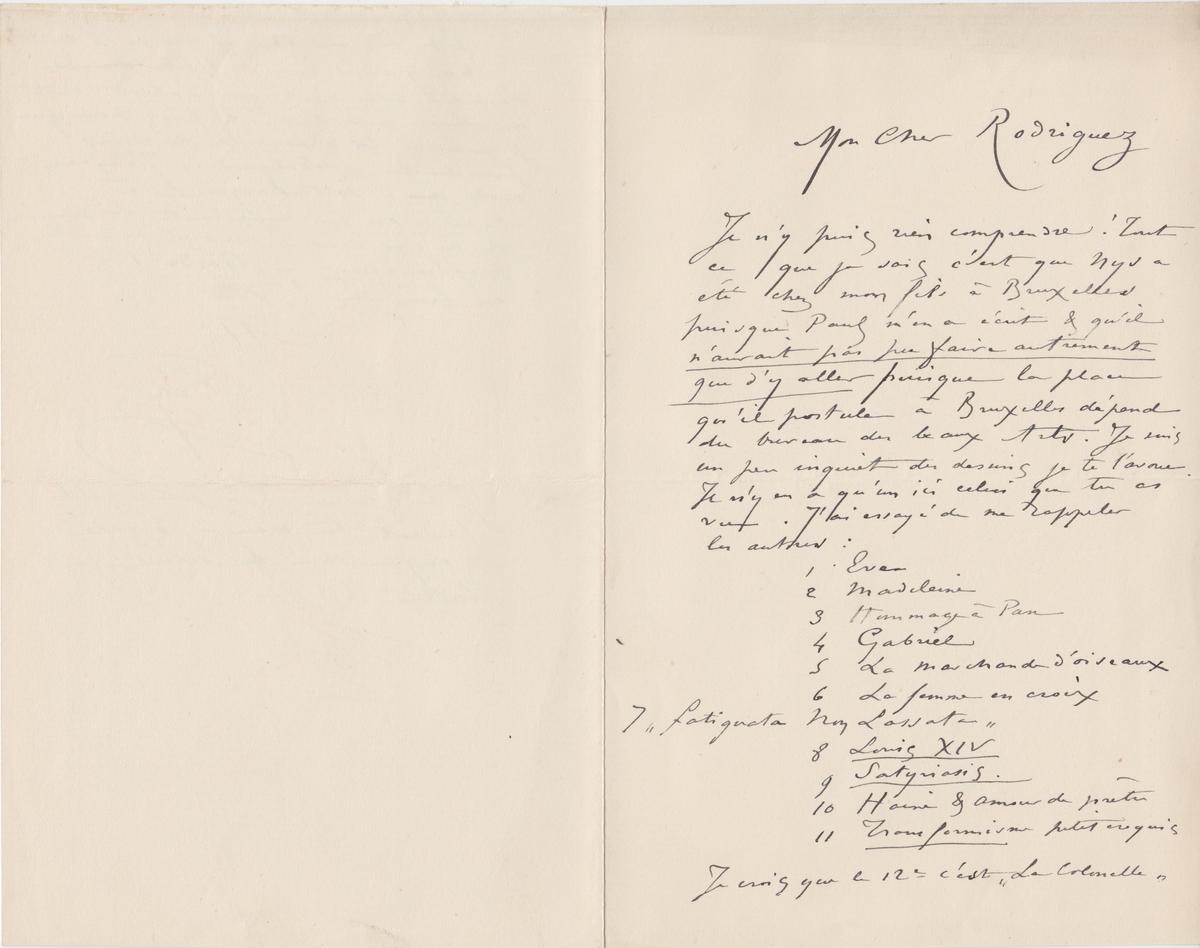 Mon Cher Rodriguez
Je n'y puis rien comprendre ! Tout
ce que je sais c'est que Nys a
été chez mon fils à Bruxelles
puisque Paul m'en a écrit & qu'il
n'aurait pas pu faire autrement
que d'y aller puisque la place
qu'il postule à Bruxelles dépend
du bureau des beaux Arts. Je suis
un peu inquiet des dessins je te l'avoue.
Je n'y en a qu'un ici celui que tu as
vu . J'ai essayé de me rappeler
les autres :
1 Eve
2 Madeleine
3 Hommage à Pan
4 Gabriel
5 La Marchande d'oiseaux
6 La femme en croix
7 „ fatiguata Non Lassata „
8 Louis XIV
9 Satyriasis.
10 Haine & amour de prêtre
11 Transformisme petit croquis
Je crois que le 12e c'est „La Colonelle „